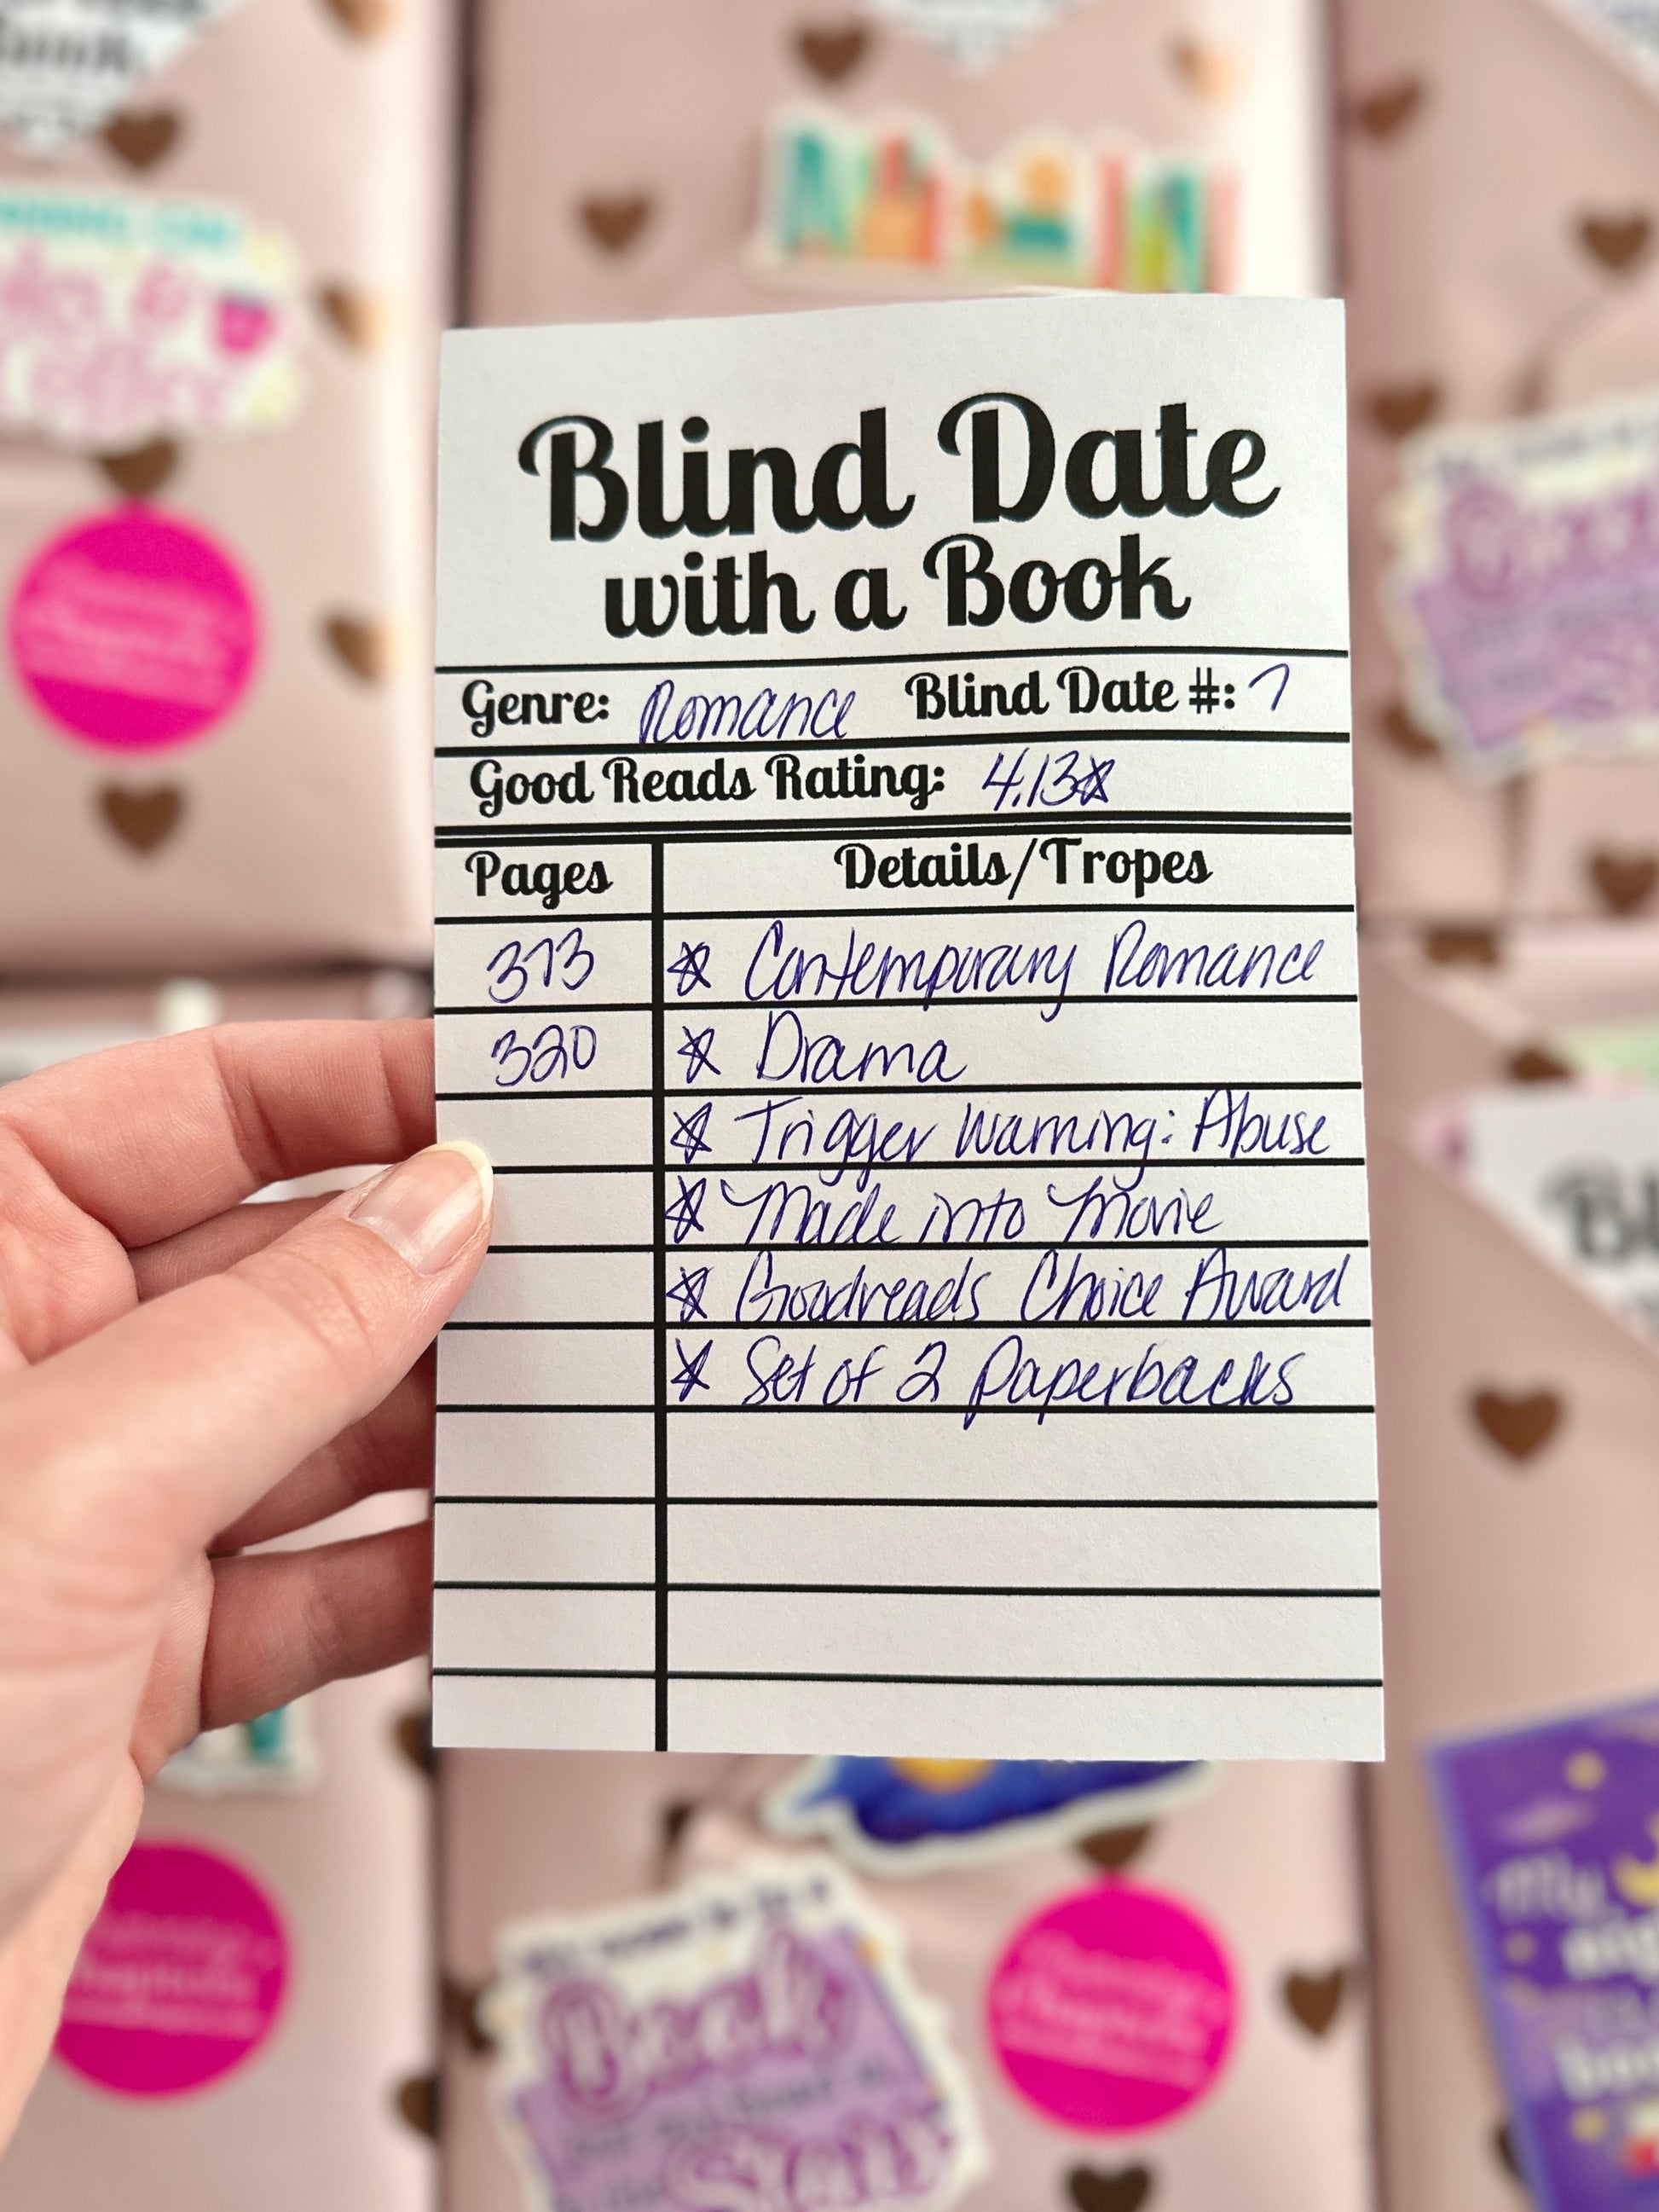 Blind Date
with a Book
Genre: Romance Blind Date #: 7
Good Reads Rating: 4.13☆
Pages Details/Tropes
373 ☆ Contemporary Romance
320 ☆ Drama
☆ Trigger Warning: Abuse
☆ Made into Movie
☆ Goodreads Choice Award
☆ Set of 2 Paperbacks
Book
My